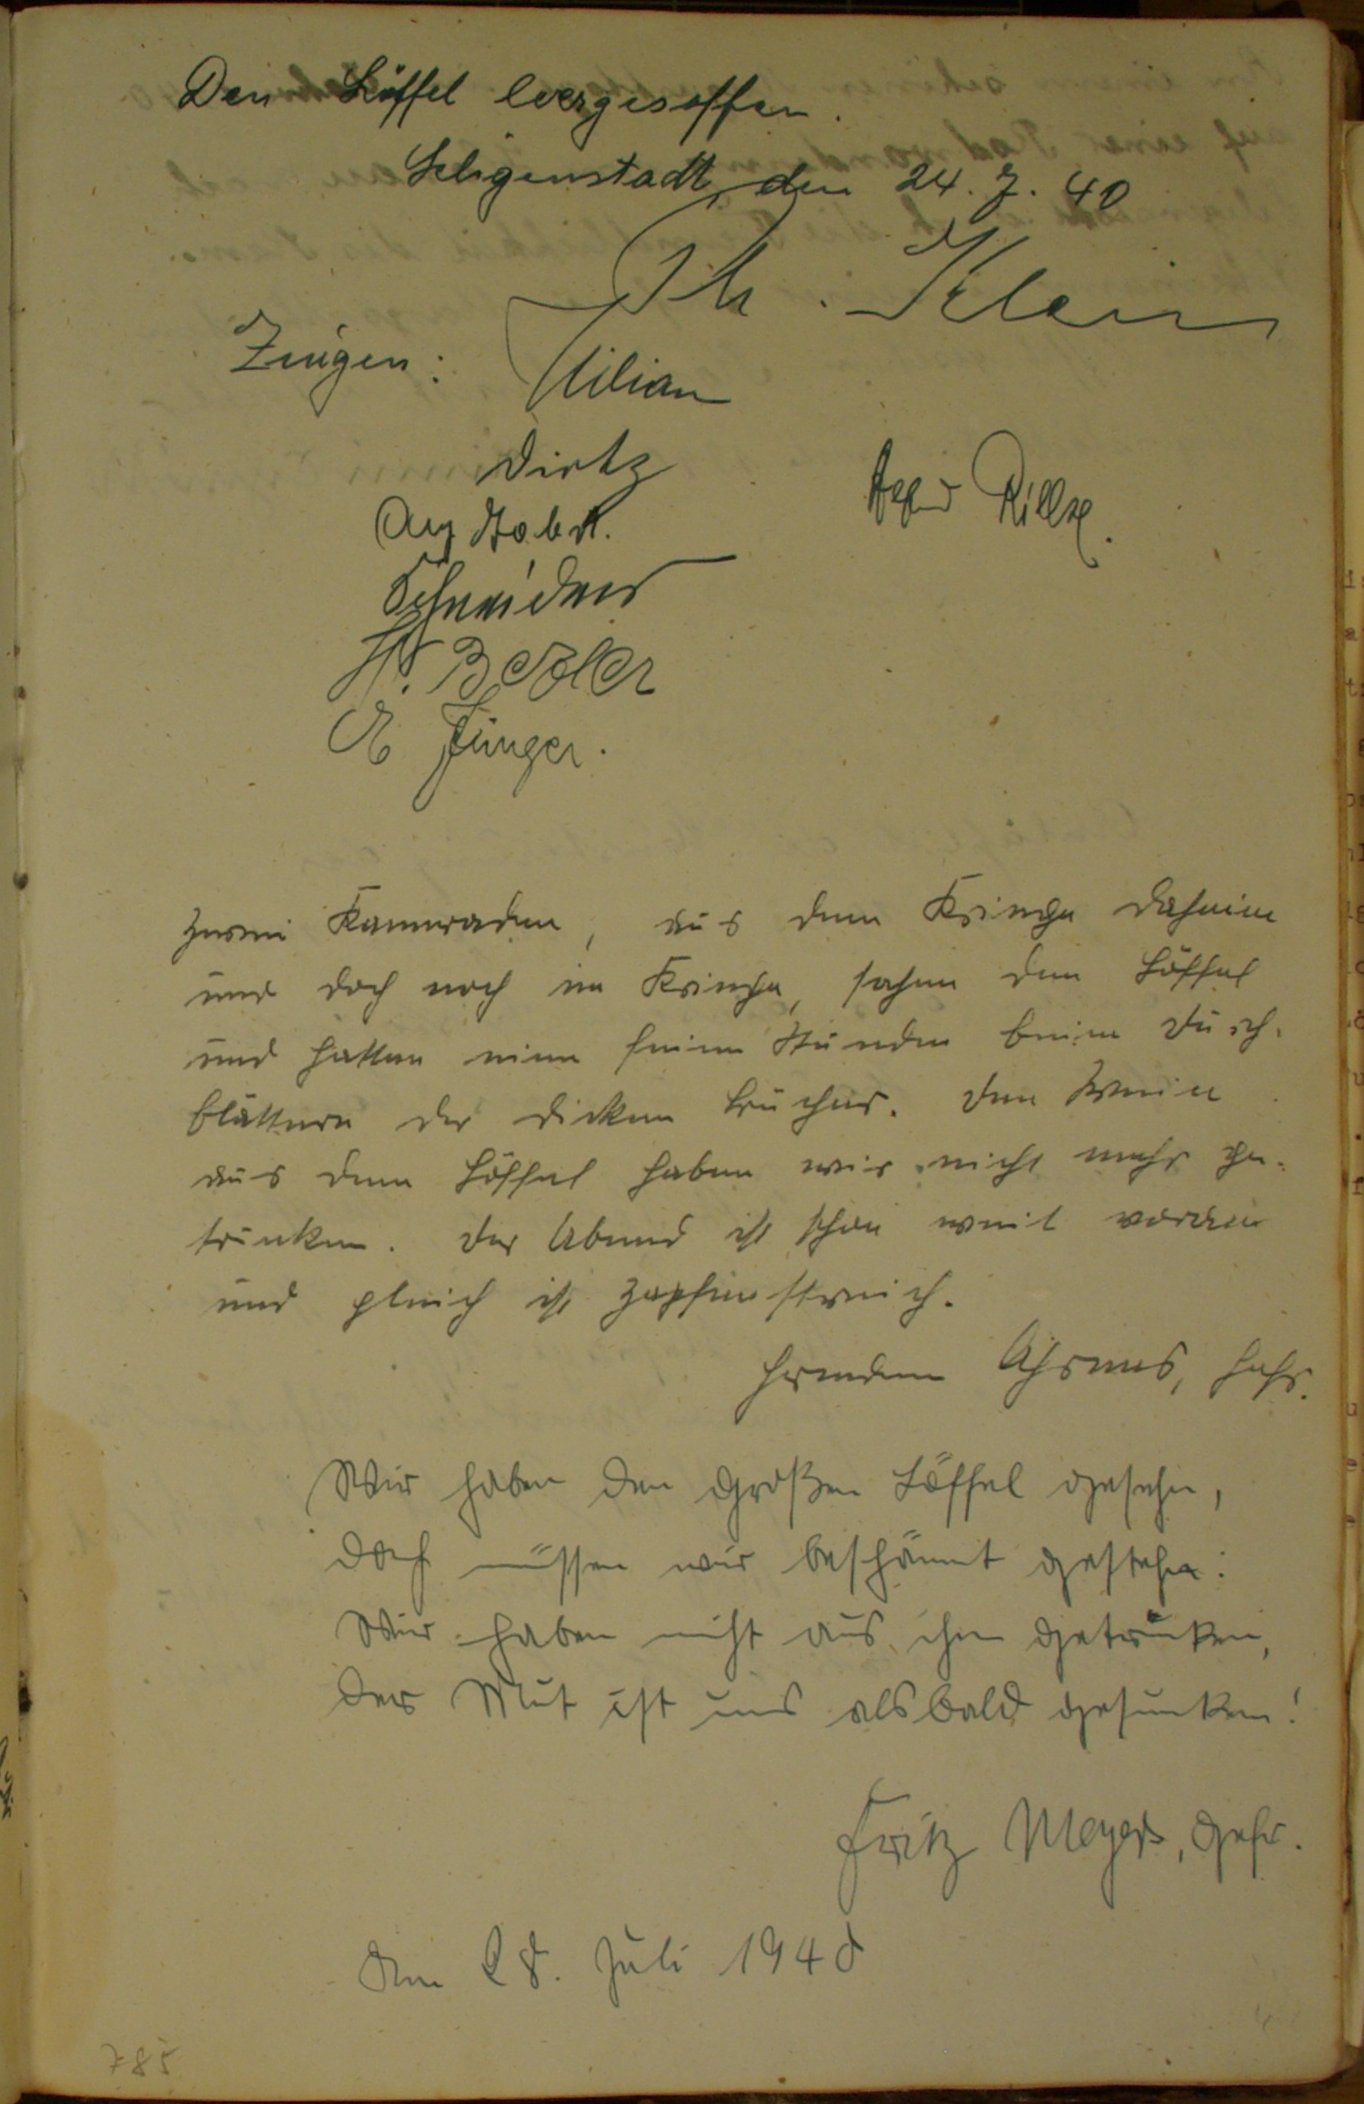 Den Löffel leergesoffen.
Seligenstadt, den 24. 7. 40
Ph. Klein
Zeugen: Kilian
Dietz
Aug
Schneider
Jünger.
Zwei Kameraden, aus dem Kriege daheim
und doch noch im Kriege, sahen den Löffel
und hatten eine feine Stunde beim Durch-
blättern der dicken Bücher. Den Wein
aus dem Löffel haben wir nicht mehr ge-
trunken. Der Abend ist schon weit voran
und gleich ist Zapfenstreich.
Ahrens, Gefr.
Wir haben den großen Löffel gesehn,
doch müssen wir beschämt gestehn:
Wir haben nicht aus ihm getrunken,
der Mut ist uns alsbald gesunken!
Fritz Meyer, Gefr.
Am 28. Juli 1940
785